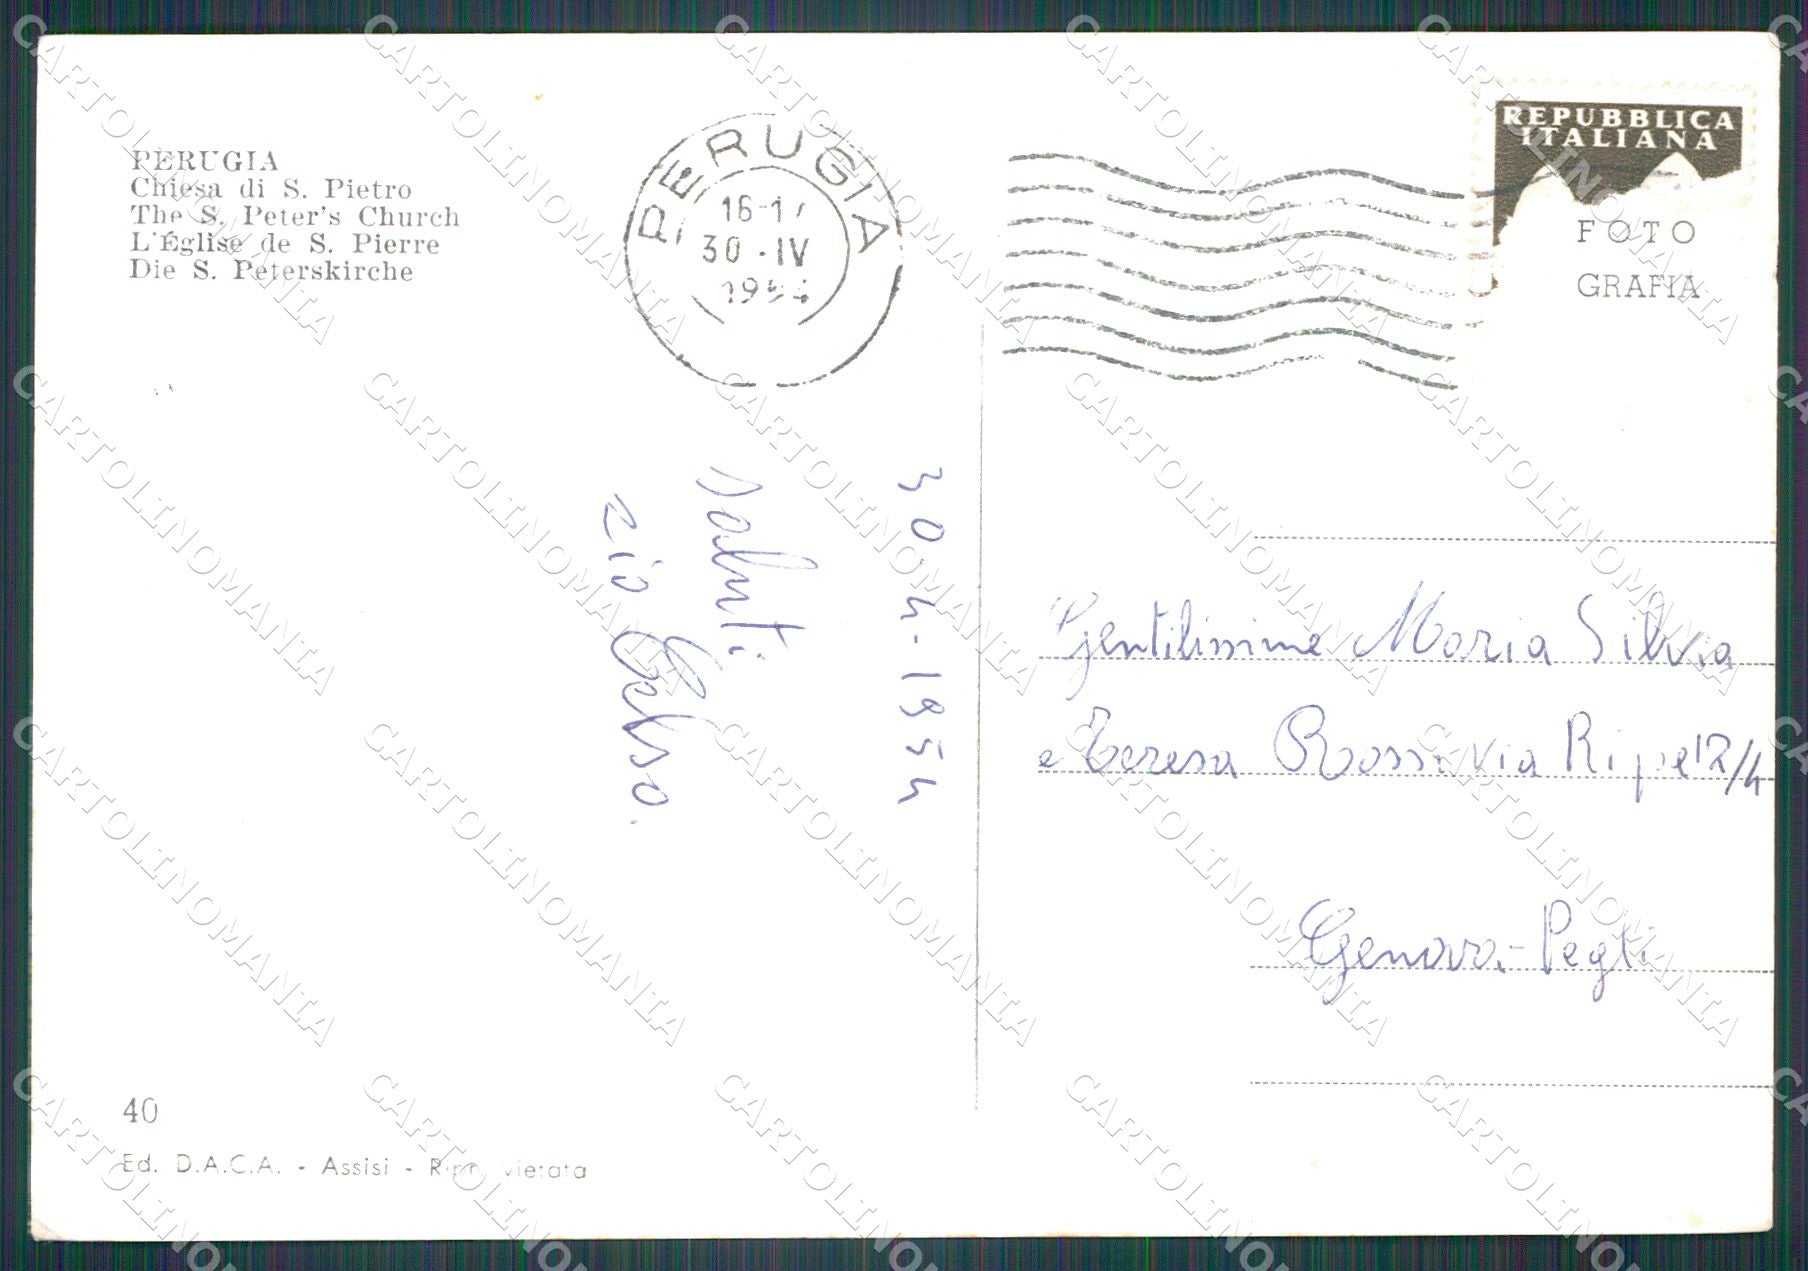 PERUGIA
Chiesa di S. Pietro
The S. Peter's Church
L'Église de S. Pierre
Die S. Peterskirche
PERUGIA
16-17
30·IV
1954
REPUBBLICA
ITALIANA
FOTO
GRAFIA
30.4-1954
saluti
zio Celso.
Gentilissime Maria Silvia
e Teresa Rossi via Ripe 12/4
Genova-Pegli
40
Ed. D.A.C.A. - Assisi - Ripr. vietata
CARTOLINOMANIA